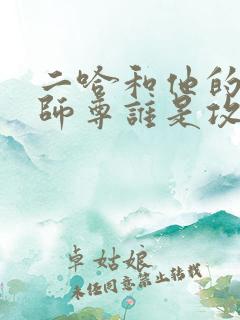 二哈和他的
師尊誰是攻
卓姑娘
未经同意禁止转载